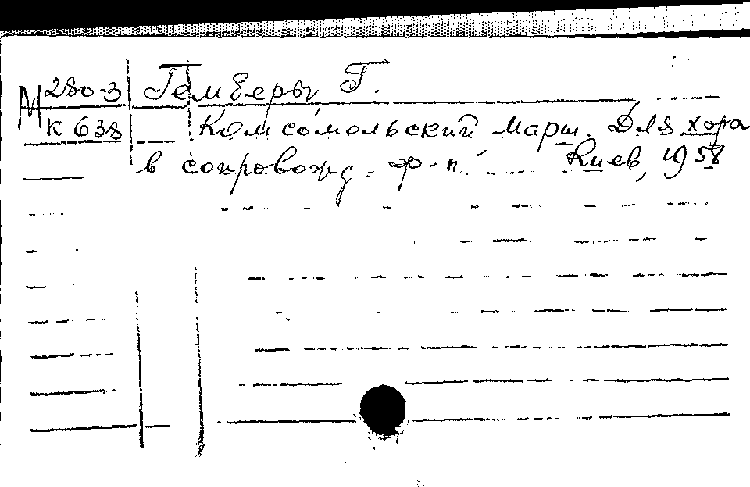 М 280-3 Гемберы Г.
К 638 Комсомольский марш. Для хора
в сопровожд. ф-п. Киев, 1958